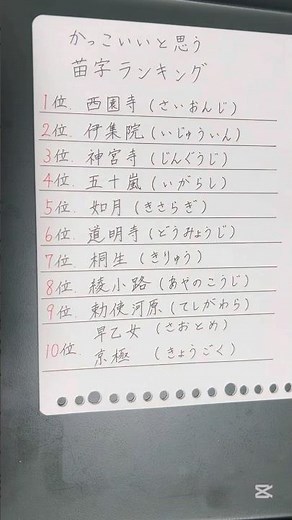 かっこいいと思う
苗字ランキング
1位 西園寺(さいおんじ)
2位. 伊集院(いじゅういん)
3位. 神宮寺(じんぐうじ)
4位. 五十嵐(いがらし)
5位. 如月(きさらぎ)
6位. 道明寺(どうみょうじ)
7位. 桐生(きりゅう)
8位. 綾小路(あやのこうじ)
9位. 勅使河原(てしがわら)
早乙女(さおとめ)
10位 京極(きょうごく)